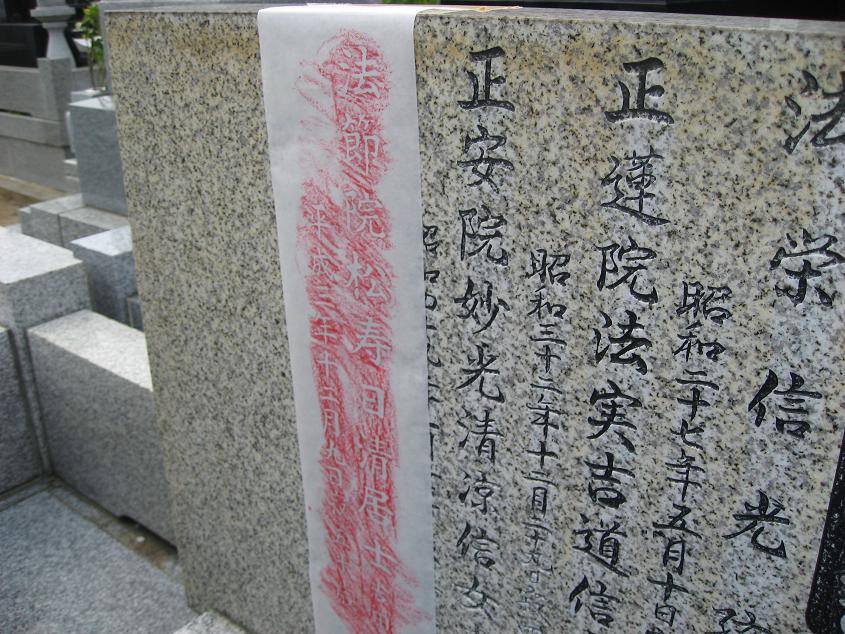 法栄信光
昭和二十七年五月十日
正蓮院法実吉道信
昭和三十二年十二月二十九日
正安院妙光清涼信女
法節院松寿日清居士
平成三年十二月九日